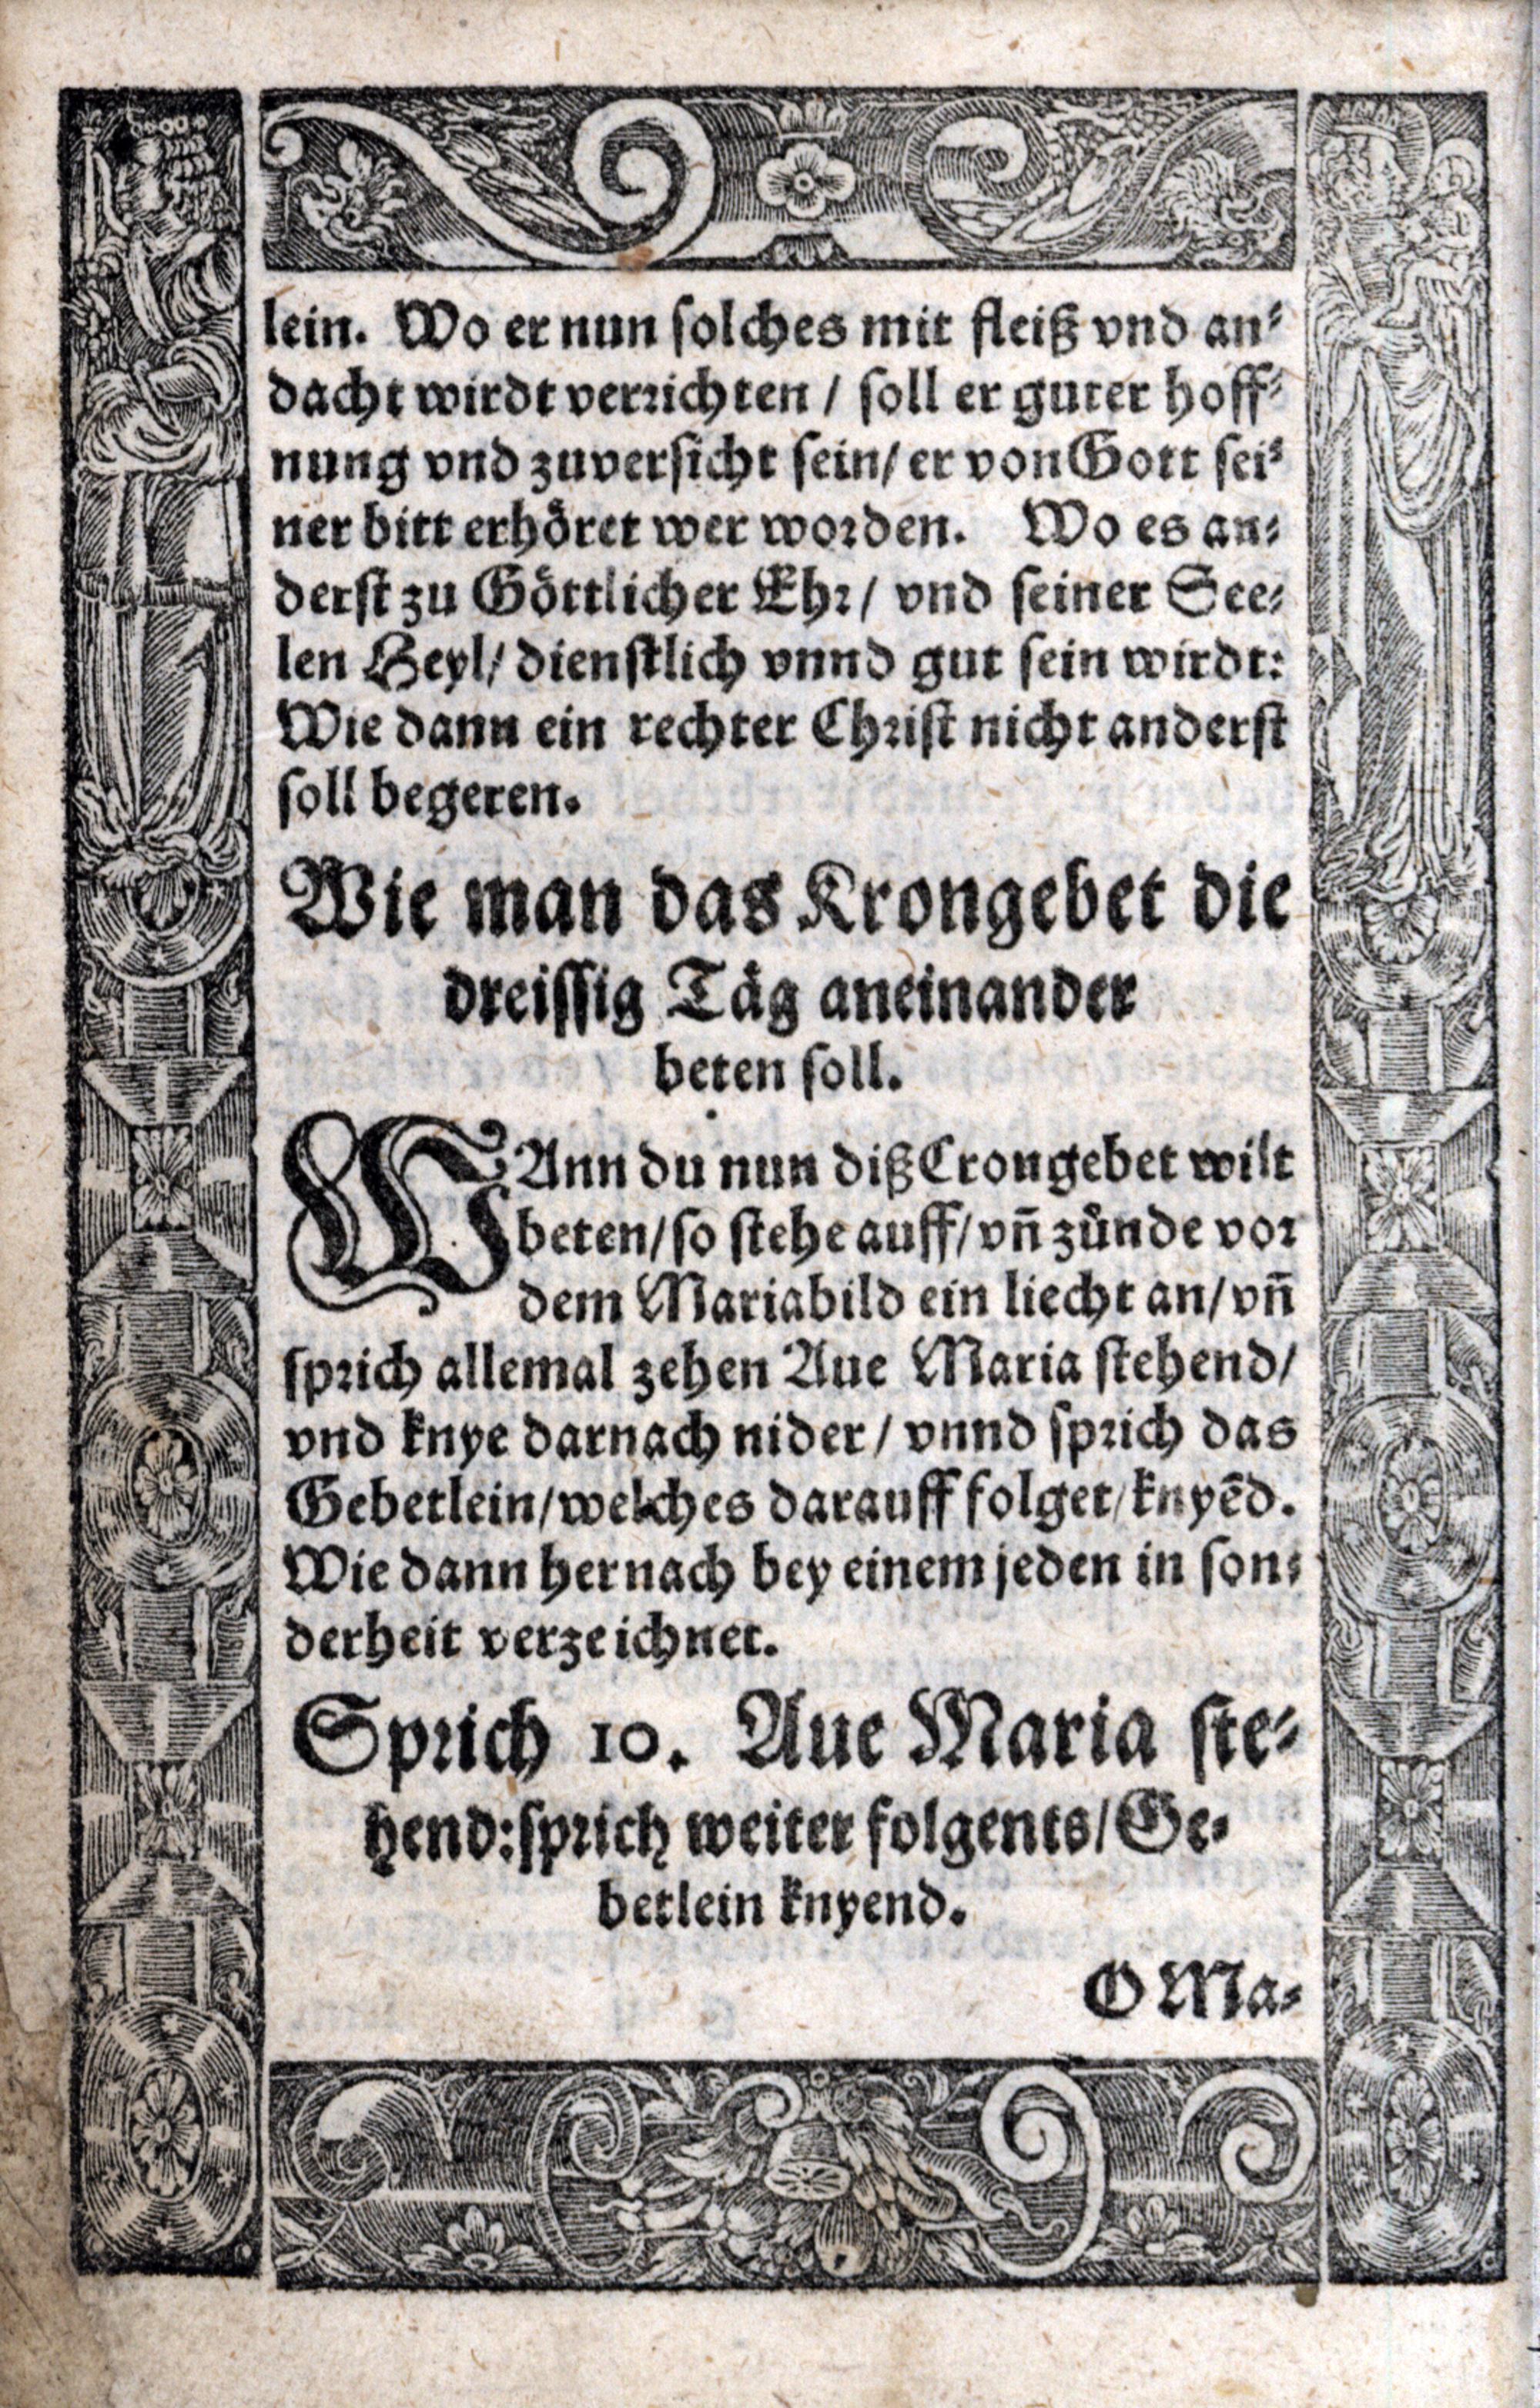 lein. Wo er nun solches mit fleiß vnd an-
dacht wirdt verrichten / soll er guter hoff-
nung vnd zuversicht sein / er von Gott sei-
ner bitt erhöret wer worden. Wo es an-
derst zu Göttlicher Ehr / vnd seiner See-
len Heyl / dienstlich vnnd gut sein wirdt:
Wie dann ein rechter Christ nicht anderst
soll begeren.
Wie man das Krongebet die
dreissig Täg aneinander
beten soll.
WAnn du nun diß Crongebet wilt
beten / so stehe auff / vñ zünde vor
dem Mariabild ein liecht an / vñ
sprich allemal zehen Aue Maria stehend /
vnd knye darnach nider / vnnd sprich das
Gebetlein / welches darauff folget / knyēd.
Wie dann hernach bey einem jeden in son-
derheit verzeichnet.
Sprich 10. Aue Maria ste-
hend: sprich weiter folgents / Ge-
betlein knyend.
O Ma-